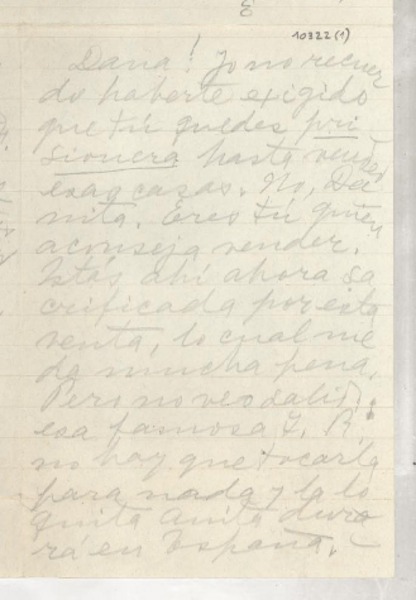 10322(1)
Dana! Yo no recuer
do haberte exigido
que tú quedes pri
sionera hasta vender
esas casas. No, Da
nita. Eres tú quien
aconseja vender.
Estás ahí ahora sa
crificada por esta
venta, lo cual me
da mucha pena.
Pero no veo salida:
esa famosa F. R.
no hay que tocarla
para nada y la lo
quita Anita dura
rá en España.